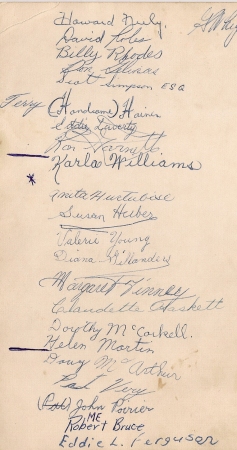 Howard Neily.
David Lohr
Billy Rhodes
Scot Simpson ESQ
Terry (Handsome) Haines
Eddie Doherty
Karla Williams
*
Anita Hurtubise
Susan Huber
Valerie Young
Diana
Margaret Finney
Claudette Haskett
Dorothy McCorkell.
Helen Martin
Doug McArthur
John Poirier
ME
Robert Bruce
Eddie L. Ferguson